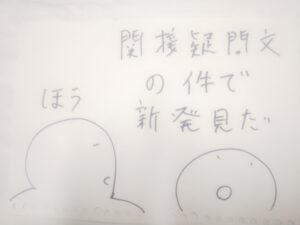 関接疑問文
の件で
新発見だ
ほう